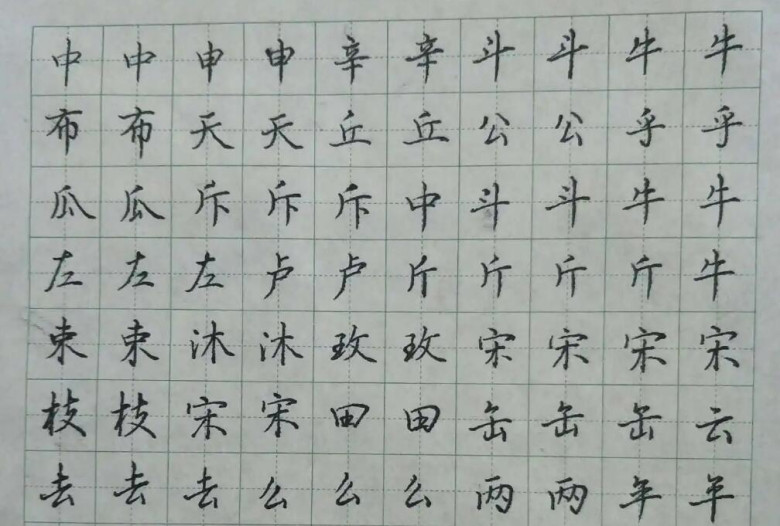 中中申申辛辛斗斗牛牛
布布天天丘丘公公乎乎
瓜瓜斥斥斥中斗斗牛牛
左左左卢卢斤斤斤斤牛
束束沐沐玫玫宋宋宋宋
枝枝宋宋田田缶缶缶云
去去去么么么两两年年